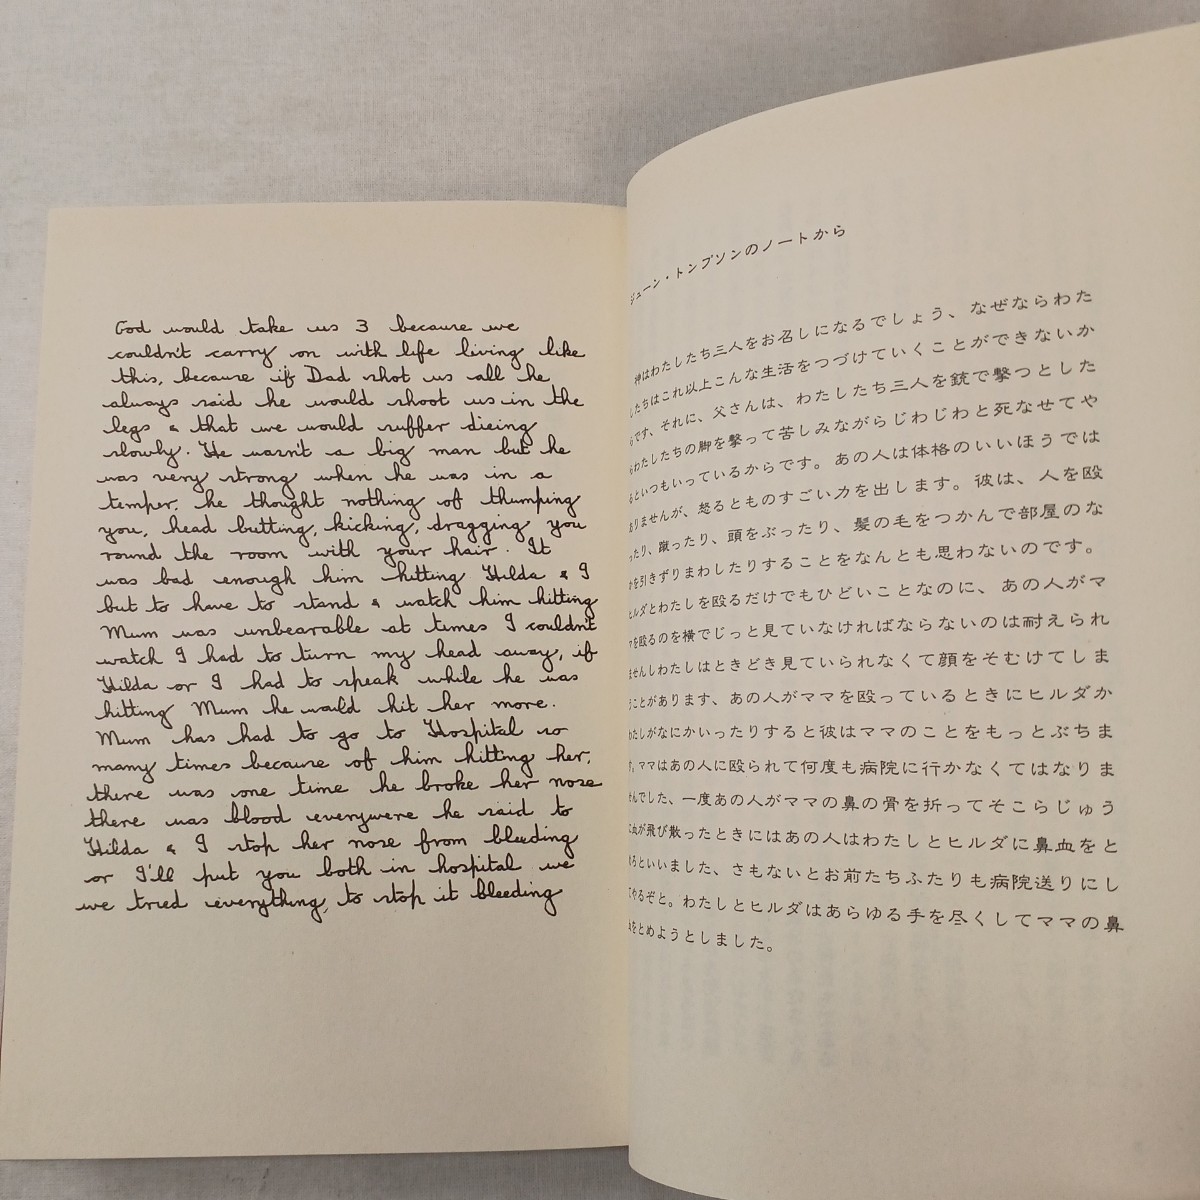 God would take us 3 because we
couldn't carry on with life living like
this, because if Dad shot us all he
always said he would shoot us in the
legs & that we would suffer dieing
slowly. He wasn't a big man but he
was very strong when he was in a
temper, he thought nothing of thumping
you, head butting, kicking, dragging you
round the room with your hair. It
was bad enough him hitting Hilda & I
but to have to stand & watch him hitting
Mum was unbearable at times I couldn't
watch I had to turn my head away, if
Hilda or I had to speak while he was
hitting Mum he would hit her more.
Mum has had to go to Hospital so
many times because of him hitting her,
there was one time he broke her nose
there was blood everywere he said to
Hilda & I stop her nose from bleeding
or I'll put you both in hospital we
we tried everything, to stop it bleeding
ジューン・トンプソンのノートから
神はわたしたち三人をお召しになるでしょう、なぜならわた
したちはこれ以上こんな生活をつづけていくことができないか
らです、それに、父さんは、わたしたち三人を銃で撃つとした
らわたしたちの脚を撃って苦しみながらじわじわと死なせてや
るといつもいっているからです。あの人は体格のいいほうでは
ありませんが、怒るとものすごい力を出します。彼は、人を殴
ったり、蹴ったり、頭をぶったり、髪の毛をつかんで部屋のな
かを引きずりまわしたりすることをなんとも思わないのです。
ヒルダとわたしを殴るだけでもひどいことなのに、あの人がマ
マを殴るのを横でじっと見ていなければならないのは耐えられ
ませんしわたしはときどき見ていられなくて顔をそむけてしま
うことがあります、あの人がママを殴っているときにヒルダか
わたしがなにかいったりすると彼はママのことをもっとぶちま
す、ママはあの人に殴られて何度も病院に行かなくてはなりま
せんでした、一度あの人がママの鼻の骨を折ってそこらじゅう
に血が飛び散ったときにはあの人はわたしとヒルダに鼻血をと
めろといいました、さもないとお前たちふたりも病院送りにし
てやるぞと。わたしとヒルダはあらゆる手を尽くしてママの鼻
血をとめようとしました。